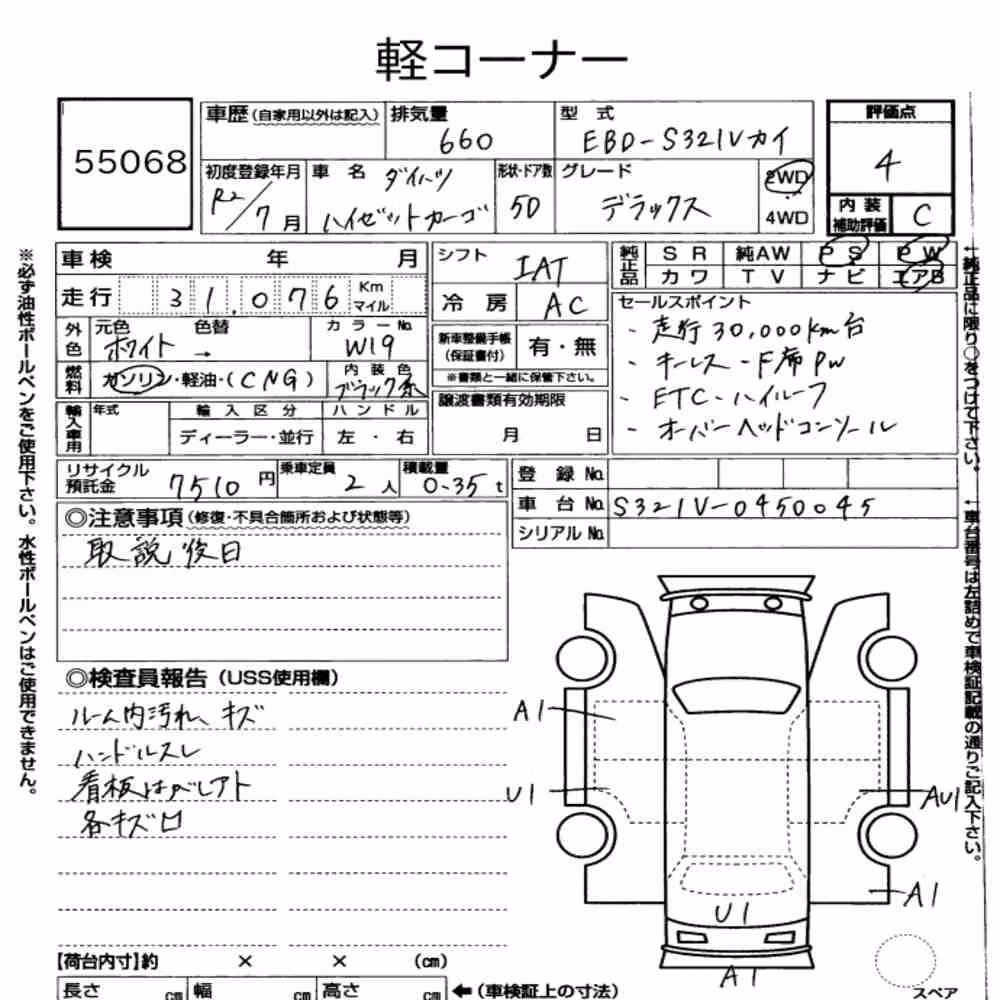 軽コーナー
55068
車歴(自家用以外は記入)
排気量 660
型式 EBD-S321Vカイ
評価点 4
初度登録年月 R2/7月
車名 ダイハツ ハイゼットカーゴ
形状・ドア数 5D
グレード デラックス
2WD
4WD
内装補助評価 C
車検 年 月
シフト IAT
純正品 SR 純AW PS PW
カワ TV ナビ エアB
走行 31,076 Km マイル
冷房 AC
セールスポイント
・走行30,000km台
・キーレス・F席PW
・ETC・ハイルーフ
・オーバーヘッドコンソール
外色 元色 ホワイト → 色替
カラーNo. W19
新車整備手帳(保証書付) 有・無
※書類と一緒に保管下さい。
燃料 ガソリン・軽油・(CNG)
内装色 ブラック系
譲渡書類有効期限
月 日
輸入車用 年式 輸入区分 ハンドル
ディーラー・並行 左・右
リサイクル預託金 7510円
乗車定員 2人
積載量 0.35t
登録No.
車台No. S321V-0450045
シリアルNo.
◎注意事項(修復・不具合箇所および状態等)
取説後日
◎検査員報告(USS使用欄)
ルーム内汚れ、キズ
ハンドルスレ
看板はがしアト
各キズ凹
A1
U1
AU1
A1
U1
A1
スペア
【荷台内寸】約 × × (cm)
長さ cm 幅 cm 高さ cm ←(車検証上の寸法)
※必ず油性ボールペンをご使用下さい。水性ボールペンはご使用できません。
←純正品に限り○をつけて下さい。
←車台番号は左詰めで車検証記載の通りご記入下さい。